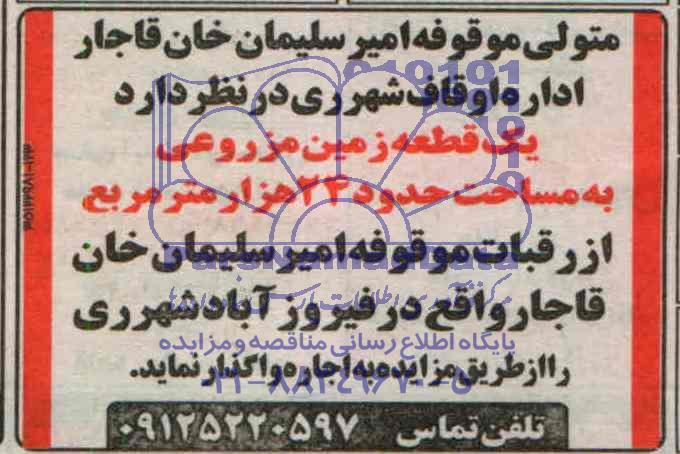 متولی موقوفه امیر سلیمان خان قاجار
اداره اوقاف شهرری در نظر دارد
یک قطعه زمین مزروعی
به مساحت حدود ۲۴ هزار متر مربع
از رقبات موقوفه امیر سلیمان خان
قاجار واقع در فیروز آباد شهر ری
را از طریق مزایده به اجاره واگذار نماید.
تلفن تماس ۰۹۱۲۵۲۲۰۵۹۷
پایگاه اطلاع رسانی مناقصه و مزایده
۰۲۱-۸۸۳۴۹۶۷۰-۵